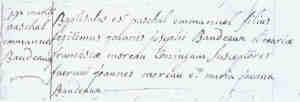 paschal
emmanuel
Baudeaux
Baptisatus est paschal emmanuel filius
legitimus Joannis Josephi Baudeaux et mariæ
franciscæ moreau conjugum susceptores
fuerunt joannes moreau et maria joanna
Baudeaux